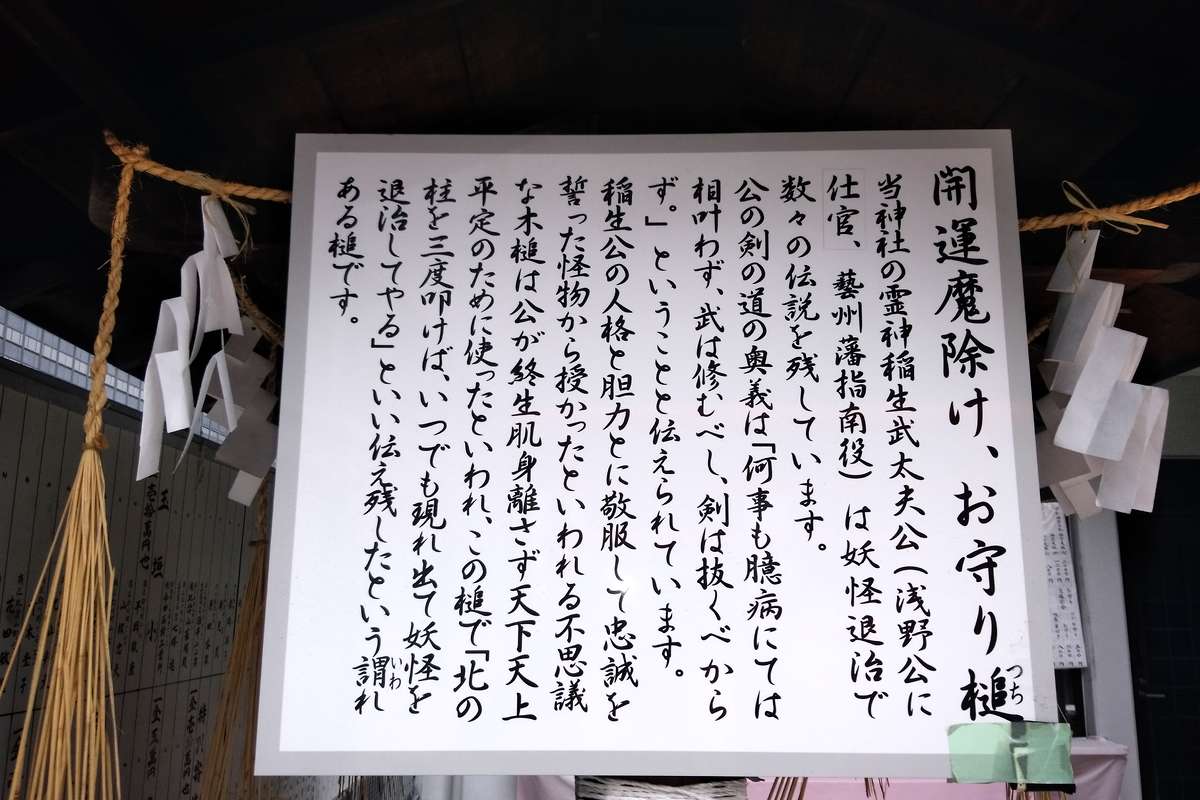 開運魔除け、お守り槌
つち
当神社の霊神稲生武太夫公(浅野公に
仕官、藝州藩指南役)は妖怪退治で
数々の伝説を残しています。
公の剣の道の奥義は「何事も臆病にては
相叶わず、武は修むべし、剣は抜くべから
ず。」ということと伝えられています。
稲生公の人格と胆力とに敬服して忠誠を
誓った怪物から授かったといわれる不思議
な木槌は公が終生肌身離さず天下天上
平定のために使ったといわれ、この槌で「北の
柱を三度叩けば、いつでも現れ出て妖怪を
退治してやる」といい伝え残したという謂れ
いわ
ある槌です。
玉垣
壱拾萬円也